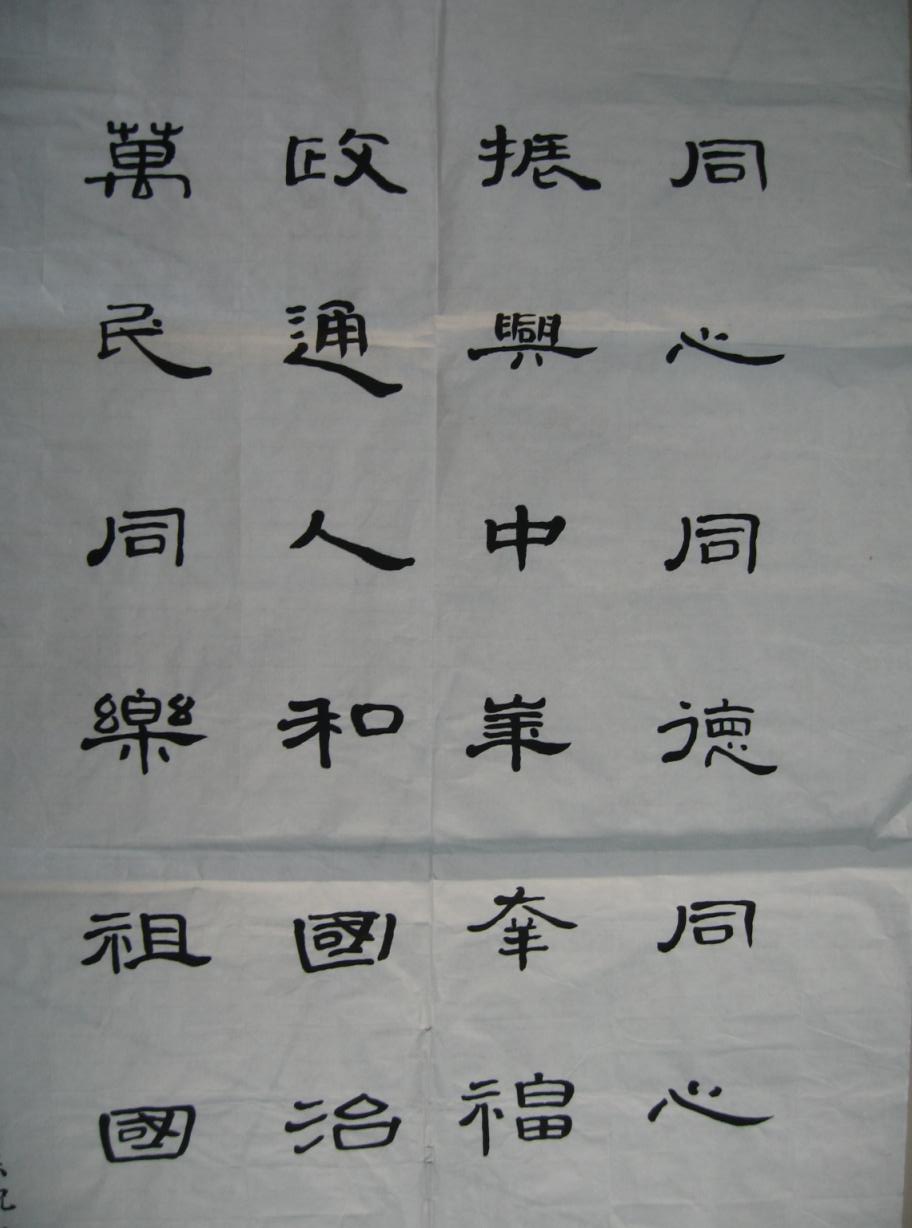 同心同德同心
振興中華幸福
政通人和國治
萬民同樂祖國